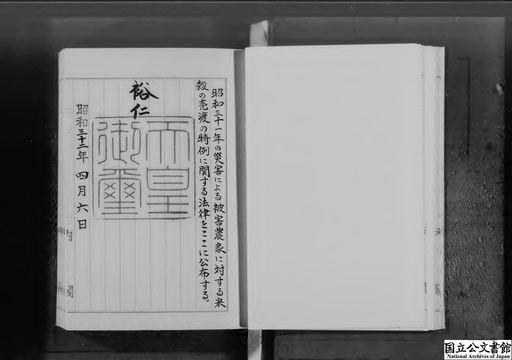 昭和三十一年の災害による被害農家に対する米
穀の売渡の特例に関する法律をここに公布する。
裕仁
天皇
御璽
昭和三十二年四月六日
内
閣
国立公文書館
National Archives of Japan